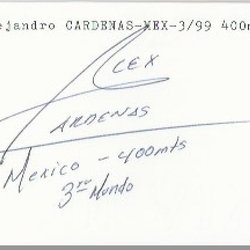 ejandro CARDENAS-MEX-3/99 400m
ALEX
CARDENAS
Mexico - 400mts
3ro Mundo